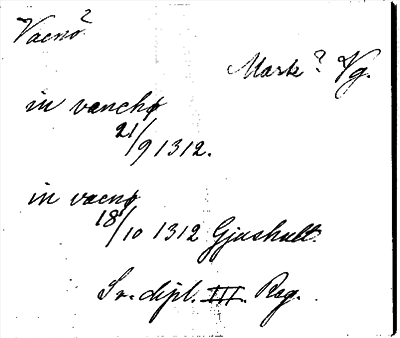 Vacnø?
Mark? Vg.
in vanchø
21/9 1312.
in vacnø
18/10 1312 Gjashult.
Sv. dipl. III. Reg.